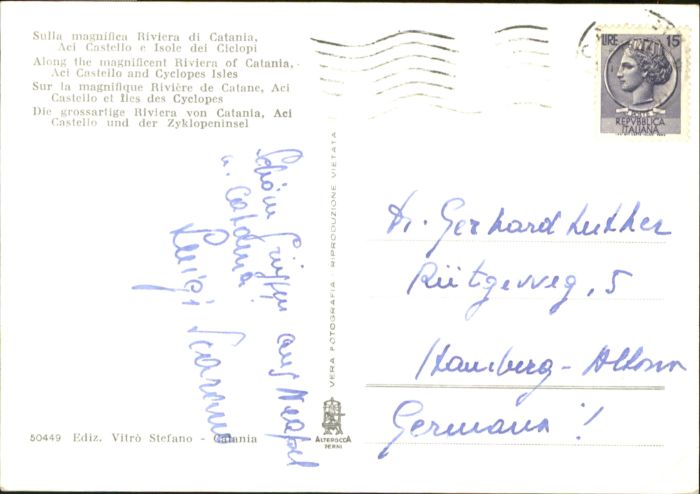 Sulla magnifica Riviera di Catania,
Aci Castello e Isole dei Ciclopi
Along the magnificent Riviera of Catania,
Aci Castello and Cyclopes Isles
Sur la magnifique Rivière de Catane, Aci
Castello et Iles des Cyclopes
Die grossartige Riviera von Catania, Aci
Castello und der Zyklopeninsel
LIRE 15
REPVBBLICA
ITALIANA
Schöne Grüsse aus Neapel
u. Catania
Luigi Scarano
VERA FOTOGRAFIA - RIPRODUZIONE VIETATA
Dr. Gerhard Luther
Rütgerweg, 5
Hamburg - Altona
Germania!
50449 Ediz. Vitrò Stefano - Catania
ALTEROCCA
TERNI